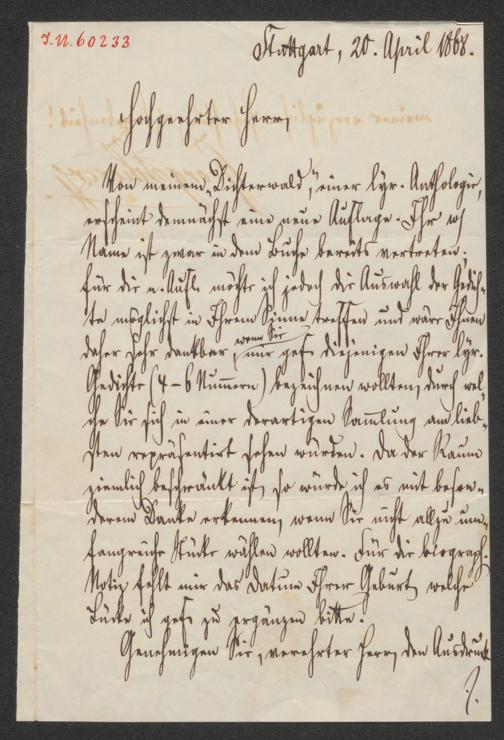 I.N. 60233
Stuttgart, 20. April 1868.
Hochgeehrter Herr,
Von meinem „Dichterwald", einer lyr. Anthologie,
erscheint demnächst eine neue Auflage. Ihr
Name ist zwar in dem Buche bereits vertreten;
für die n. Aufl. möchte ich jedoch die Auswahl der Gedich-
te möglichst in Ihrem Sinne treffen und wäre Ihnen
daher sehr dankbar, wenn Sie
mir gef. diejenigen Ihrer lyr.
Gedichte (4–6 Nummern) bezeichnen wollten, durch wel-
che Sie sich in einer derartigen Sammlung am lieb-
sten repräsentirt sehen würden. Da der Raum
ziemlich beschränkt ist, so würde ich es mit beson-
derem Danke erkennen, wenn Sie nicht allzu um-
fangreiche Stücke wählen wollten. Für die biograph.
Notiz fehlt mir das Datum Ihrer Geburt, welche
Lücke ich gef. zu ergänzen bitte.
Genehmigen Sie, verehrter Herr, den Ausdruck